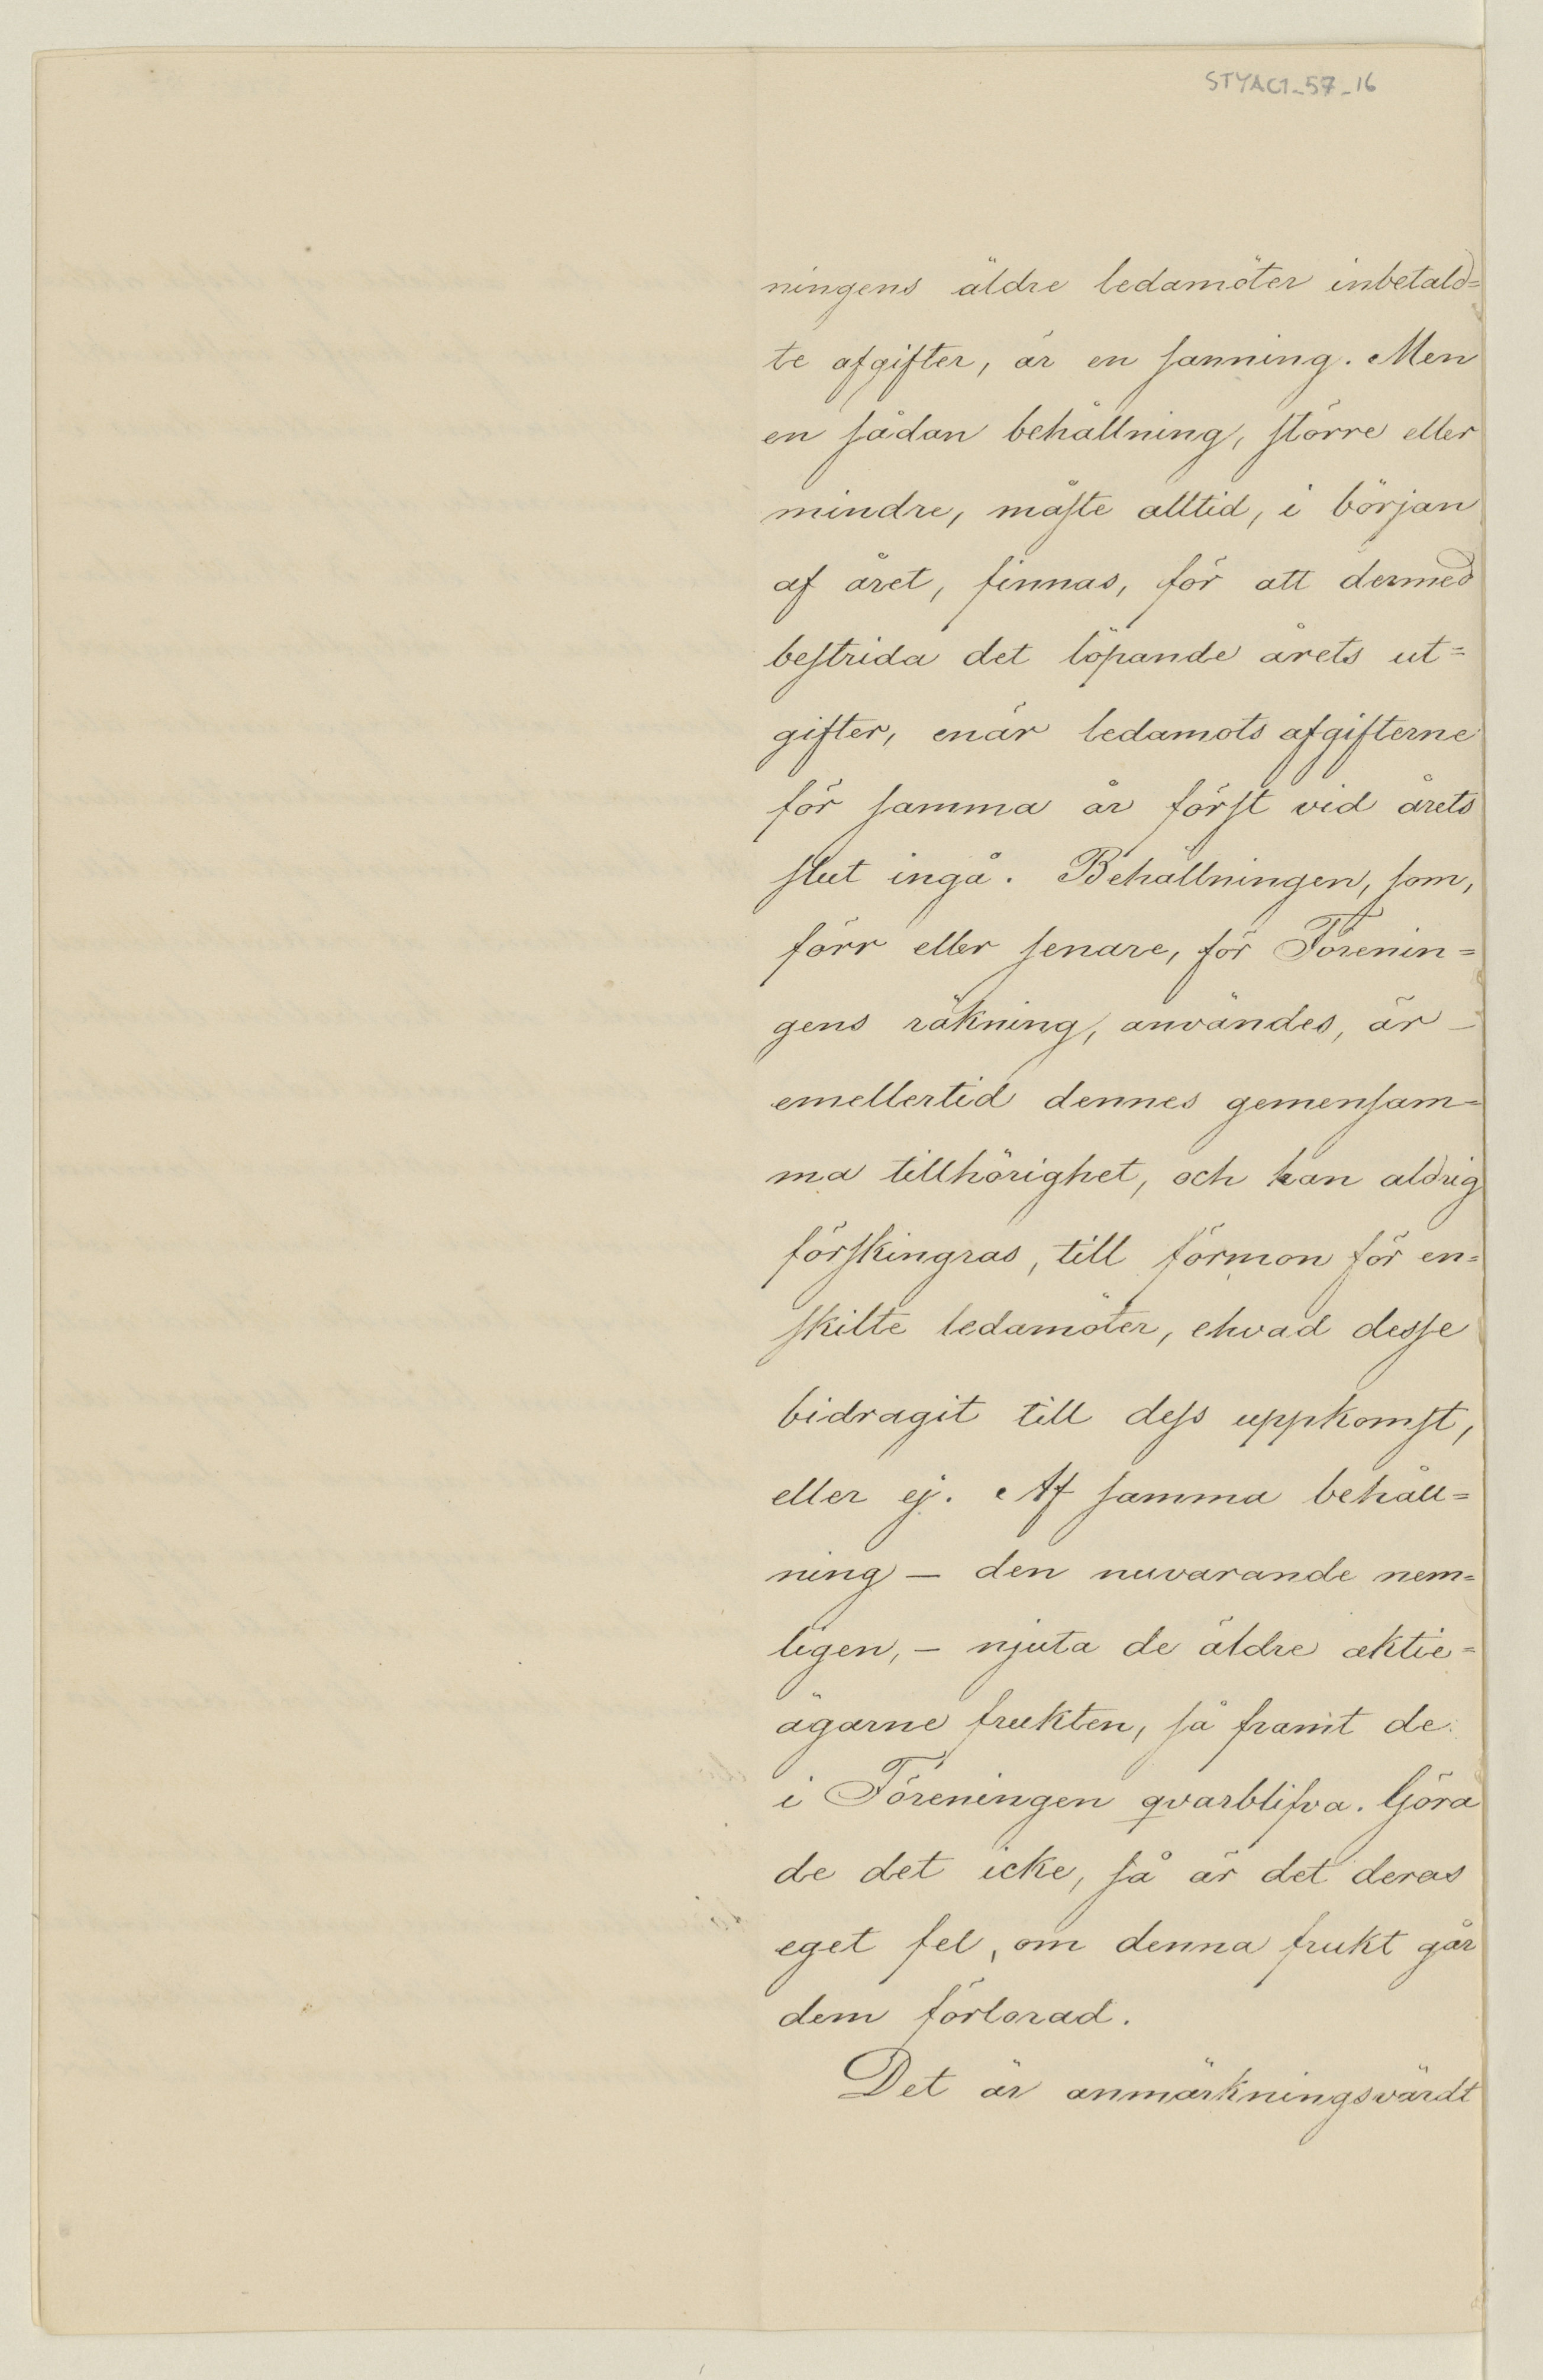 STYAC1_57_16
ningens äldre ledamöter inbetald=
te afgifter, är en sanning. Men
en sådan behållning, större eller
mindre, måste alltid, i början
af året, finnas, för att dermed
bestrida det löpande årets ut=
gifter, enär ledamots afgifterne
för samma år först vid årets
slut ingå. Behållningen, som,
förr eller senare, för Förenin=
gens räkning, användes, är
emellertid dennes gemensam=
ma tillhörighet, och kan aldrig
förskingras, till förmon för en=
skilte ledamöter, ehvad desse
bidragit till dess uppkomst,
eller ej. Af samma behåll=
ning — den nuvarande nem=
ligen, — njuta de äldre aktie=
ägarne frukten, så framt de
i Föreningen qvarblifva. Göra
de det icke, så är det deras
eget fel, om denna frukt går
dem förlorad.
Det är anmärkningsvärdt